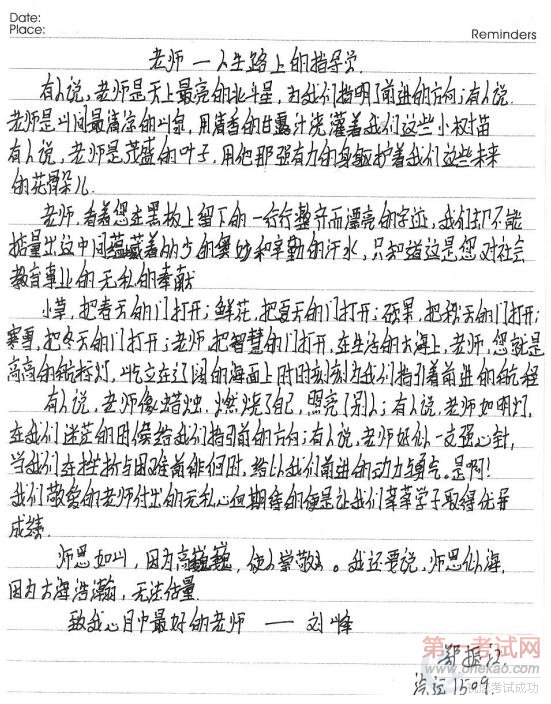 Date:
Place:
Reminders
老师一人生路上的指导员
有人说,老师是天上最亮的北斗星,为我们指明了前进的方向;有人说
老师是山间最清凉的山泉,用清香的甘露汁浇灌着我们这些小树苗
有人说,老师是茂盛的叶子,用他那强有力的身躯护着我们这些未来
的花骨朵儿
老师,看着您在黑板上留下的一行行整齐而漂亮的字迹,我们却不能
掂量出这中间蕴藏着的少的奥妙和辛勤的汗水,只知道这是您对社会
教育事业的无私的奉献
小草,把春天的门打开;鲜花,把夏天的门打开;硕果,把秋天的门打开;
寒雪,把冬天的门打开;老师,把智慧的门打开,在生活的大海上,老师,您就是
高高的航标灯,屹立在辽阔的海面上时时刻刻为我们指引着前进的航程
有人说,老师像蜡烛,燃烧了自己,照亮了别人;有人说,老师如明灯,
在我们迷茫的时候给我们指引前的方向;有人说,老师好似一支强心针,
当我们在挫折与困难前徘徊时,给以我们前进的动力与勇气。是啊!
我们敬爱的老师付出的无私心血期待的便是让我们莘莘学子取得优异
成绩.
师恩如山,因为高巍巍,使人崇敬。我还要说,师恩似海,
因为大海浩瀚,无法估量.
致我心目中最好的老师 — 刘峰
第一考试网
www.onekao.com
郑振江
汽运1509.
考试成功